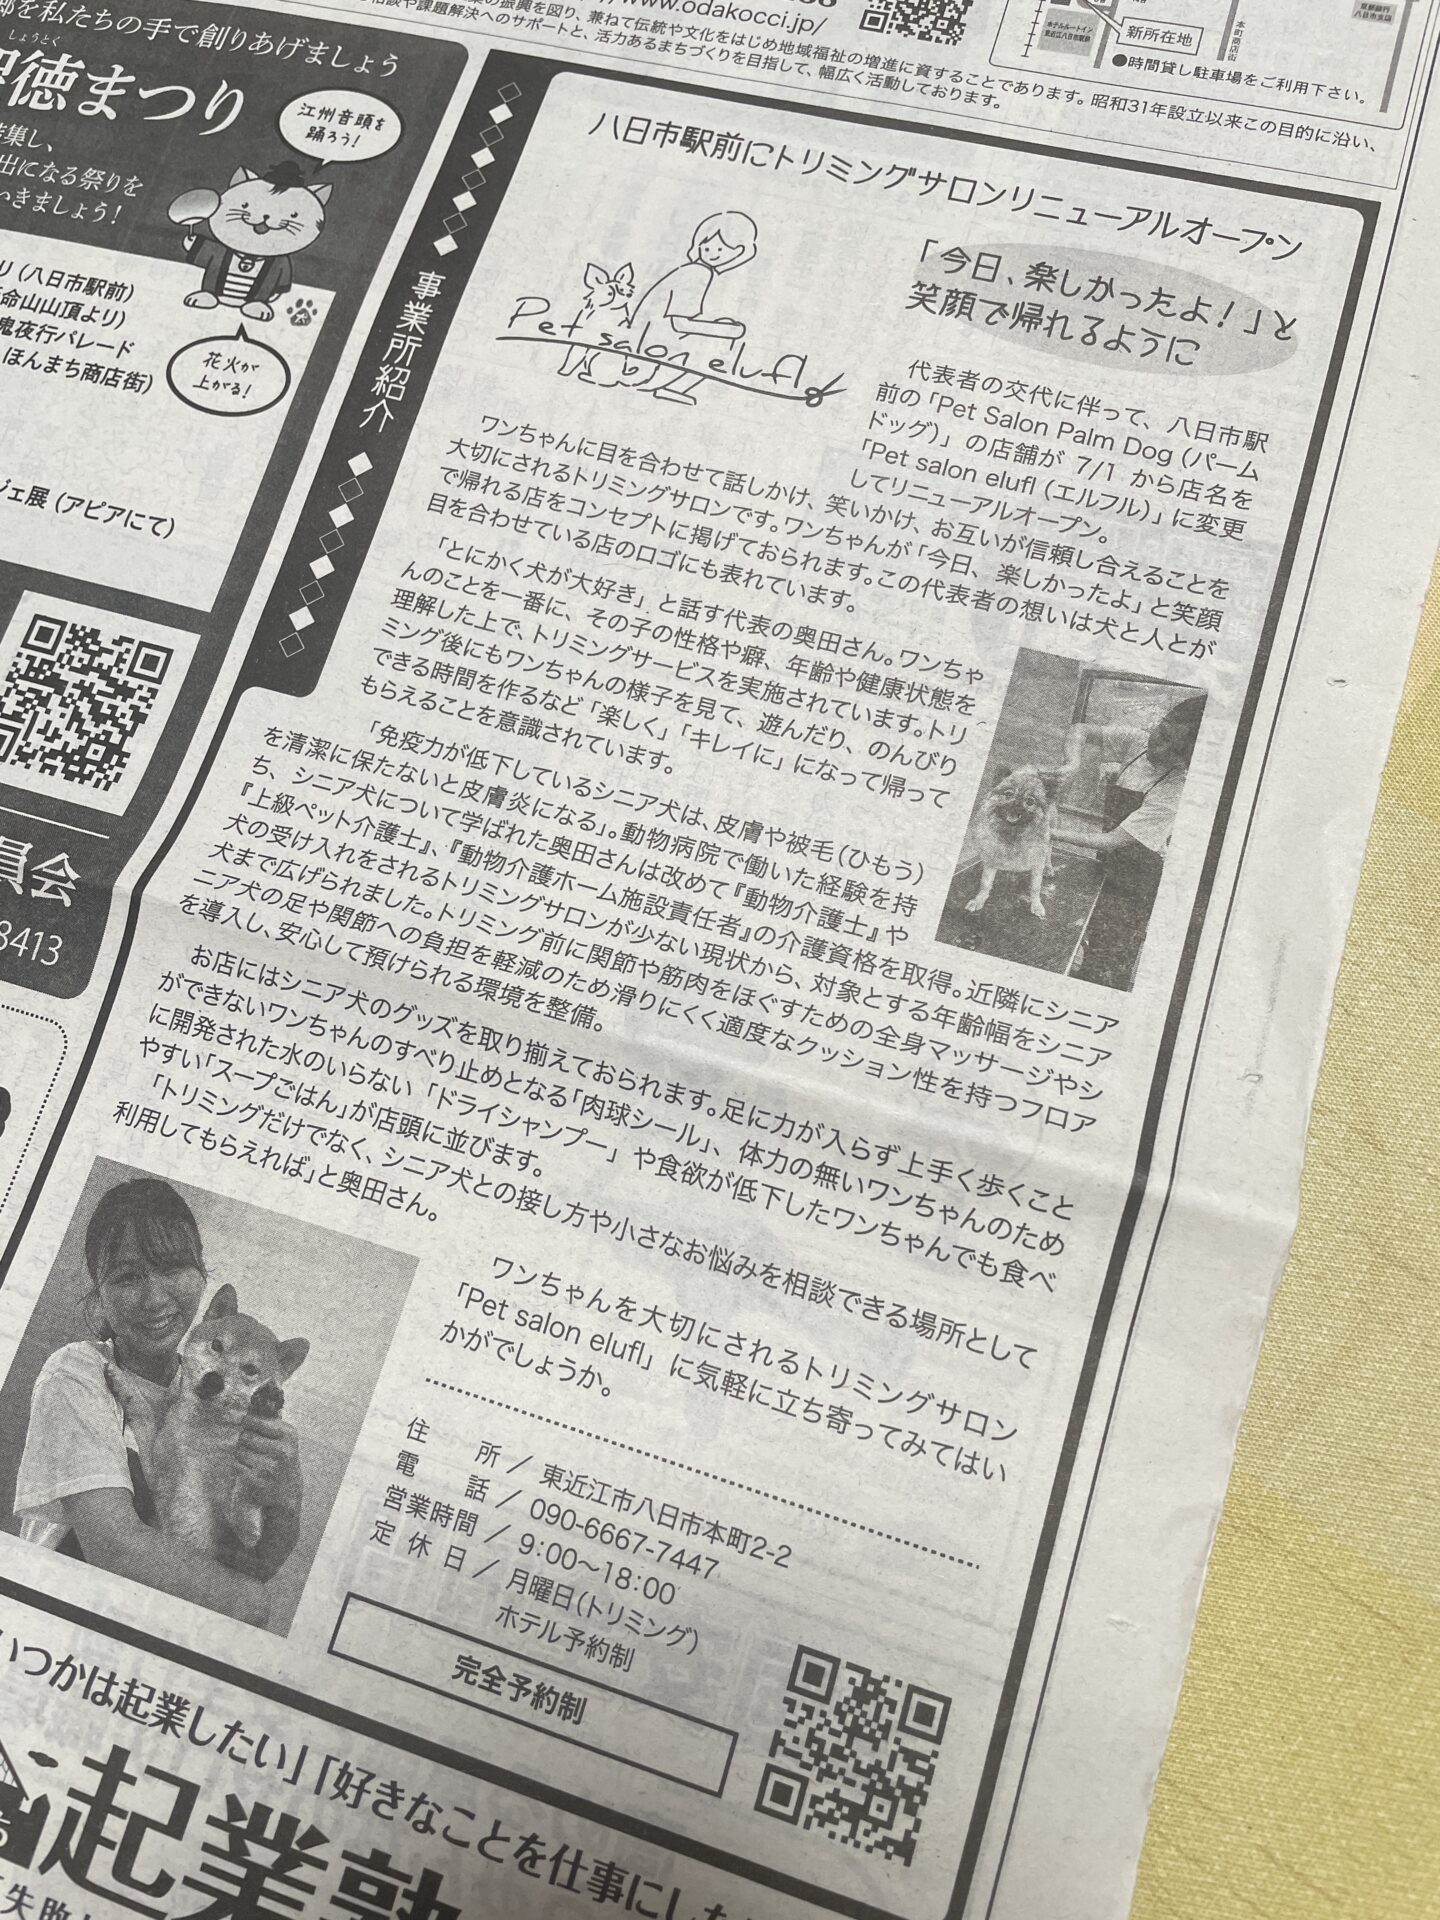 www.odakocci.jp/
の振興を図り、兼ねて伝統や文化をはじめ地域福祉の増進に資することであります。昭和31年設立以来この目的に沿い、
相談や課題解決へのサポートと、活力あるまちづくりを目指して、幅広く活動しております。
新所在地
本町商店街
●時間貸し駐車場をご利用下さい。
を私たちの手で創りあげましょう
しょうとく
徳まつり
集し、
出になる祭りを
いきましょう!
江州音頭を
踊ろう!
花火が
上がる!
(八日市駅前)
命山山頂より)
鬼夜行パレード
ほんまち商店街)
ジェ展(アピアにて)
員会
8413
事業所紹介
八日市駅前にトリミングサロンリニューアルオープン
Pet salon elufl
「今日、楽しかったよ!」と
笑顔で帰れるように
代表者の交代に伴って、八日市駅
前の「Pet Salon Palm Dog(パーム
ドッグ)」の店舗が 7/1 から店名を
「Pet salon elufl(エルフル)」に変更
してリニューアルオープン。
ワンちゃんに目を合わせて話しかけ、笑いかけ、お互いが信頼し合えることを
大切にされるトリミングサロンです。ワンちゃんが「今日、楽しかったよ」と笑顔
で帰れる店をコンセプトに掲げておられます。この代表者の想いは犬と人とが
目を合わせている店のロゴにも表れています。
「とにかく犬が大好き」と話す代表の奥田さん。ワンちゃ
んのことを一番に、その子の性格や癖、年齢や健康状態を
理解した上で、トリミングサービスを実施されています。トリ
ミング後にもワンちゃんの様子を見て、遊んだり、のんびり
できる時間を作るなど「楽しく」「キレイに」になって帰って
もらえることを意識されています。
「免疫力が低下しているシニア犬は、皮膚や被毛(ひもう)
を清潔に保たないと皮膚炎になる」。動物病院で働いた経験を持
ち、シニア犬について学ばれた奥田さんは改めて『動物介護士』や
『上級ペット介護士』、『動物介護ホーム施設責任者』の介護資格を取得。近隣にシニア
犬の受け入れをされるトリミングサロンが少ない現状から、対象とする年齢幅をシニア
犬まで広げられました。トリミング前に関節や筋肉をほぐすための全身マッサージやシ
ニア犬の足や関節への負担を軽減のため滑りにくく適度なクッション性を持つフロア
を導入し、安心して預けられる環境を整備。
お店にはシニア犬のグッズを取り揃えておられます。足に力が入らず上手く歩くこと
ができないワンちゃんのすべり止めとなる「肉球シール」、体力の無いワンちゃんのため
に開発された水のいらない「ドライシャンプー」や食欲が低下したワンちゃんでも食べ
やすい「スープごはん」が店頭に並びます。
「トリミングだけでなく、シニア犬との接し方や小さなお悩みを相談できる場所として
利用してもらえれば」と奥田さん。
ワンちゃんを大切にされるトリミングサロン
「Pet salon elufl」に気軽に立ち寄ってみてはい
かがでしょうか。
住所/東近江市八日市本町2-2
電話/090-6667-7447
営業時間/9:00~18:00
定休日/月曜日(トリミング)
ホテル予約制
完全予約制
いつかは起業したい」「好きなことを仕事にした
起業塾
失敗